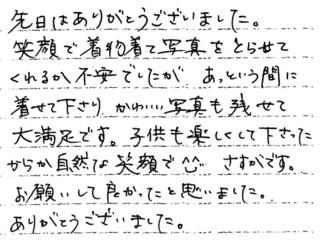 先日はありがとうございました。
笑顔で着物着て写真をとらせて
くれるか不安でしたが あっという間に
着せて下さり かわいい写真も残せて
大満足です。子供も楽しくして下さった
からか自然な笑顔で さすがです。
お願いして良かったと思いました。
ありがとうございました。